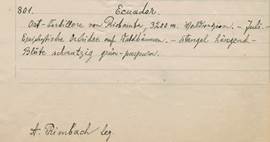 801. Ecuador.
Ost-Cordillere von Riobamba, 3200 m. Waldregion. – Juli.
Epiphytische Orchidee auf Waldbäumen. – Stengel hängend –
Blüte schmutzig grün-purpurn.
A. Rimbach leg.